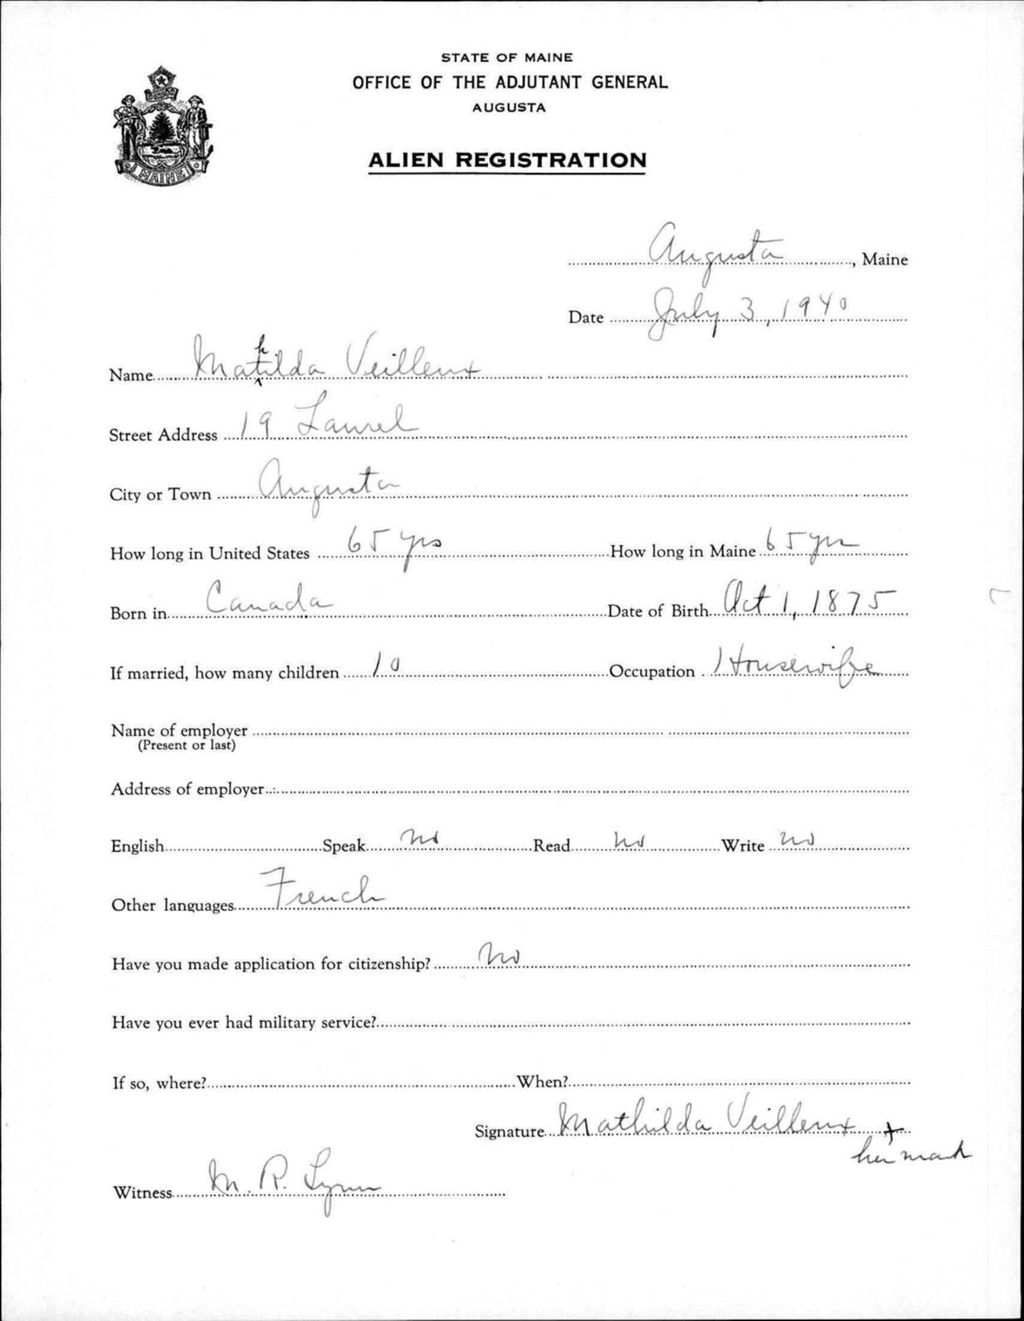 STATE OF MAINE
OFFICE OF THE ADJUTANT GENERAL
AUGUSTA
MAINE
ALIEN REGISTRATION
Augusta, Maine
Date July 3, 1940
Name Mathilda Veilleux
Street Address 19 Laurel
City or Town Augusta
How long in United States 65 yrs How long in Maine 65 yrs
Born in Canada Date of Birth Oct 1, 1875
If married, how many children 10 Occupation Housewife
Name of employer
(Present or last)
Address of employer
English Speak No Read No Write No
Other languages French
Have you made application for citizenship? No
Have you ever had military service?
If so, where? When?
Signature Mathilda Veilleux +
her mark
Witness M. R. Lynn